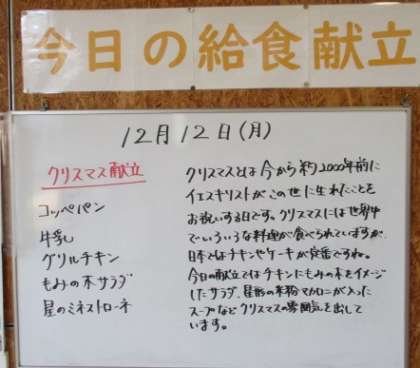 今日の給食献立
12月12日(月)
クリスマス献立
コッペパン
牛乳
グリルチキン
もみの木サラダ
星のミネストローネ
クリスマスとは今から約2000年前に
イエスキリストがこの世に生れたことを
お祝いする日です。クリスマスには世界中
でいろいろな料理が食べられていますが、
日本ではチキンやケーキが定番ですね。
今日の献立ではチキンにもみの木をイメージ
したサラダ、星形の米粉マカロニが入った
スープなどクリスマスの雰囲気を出して
います。